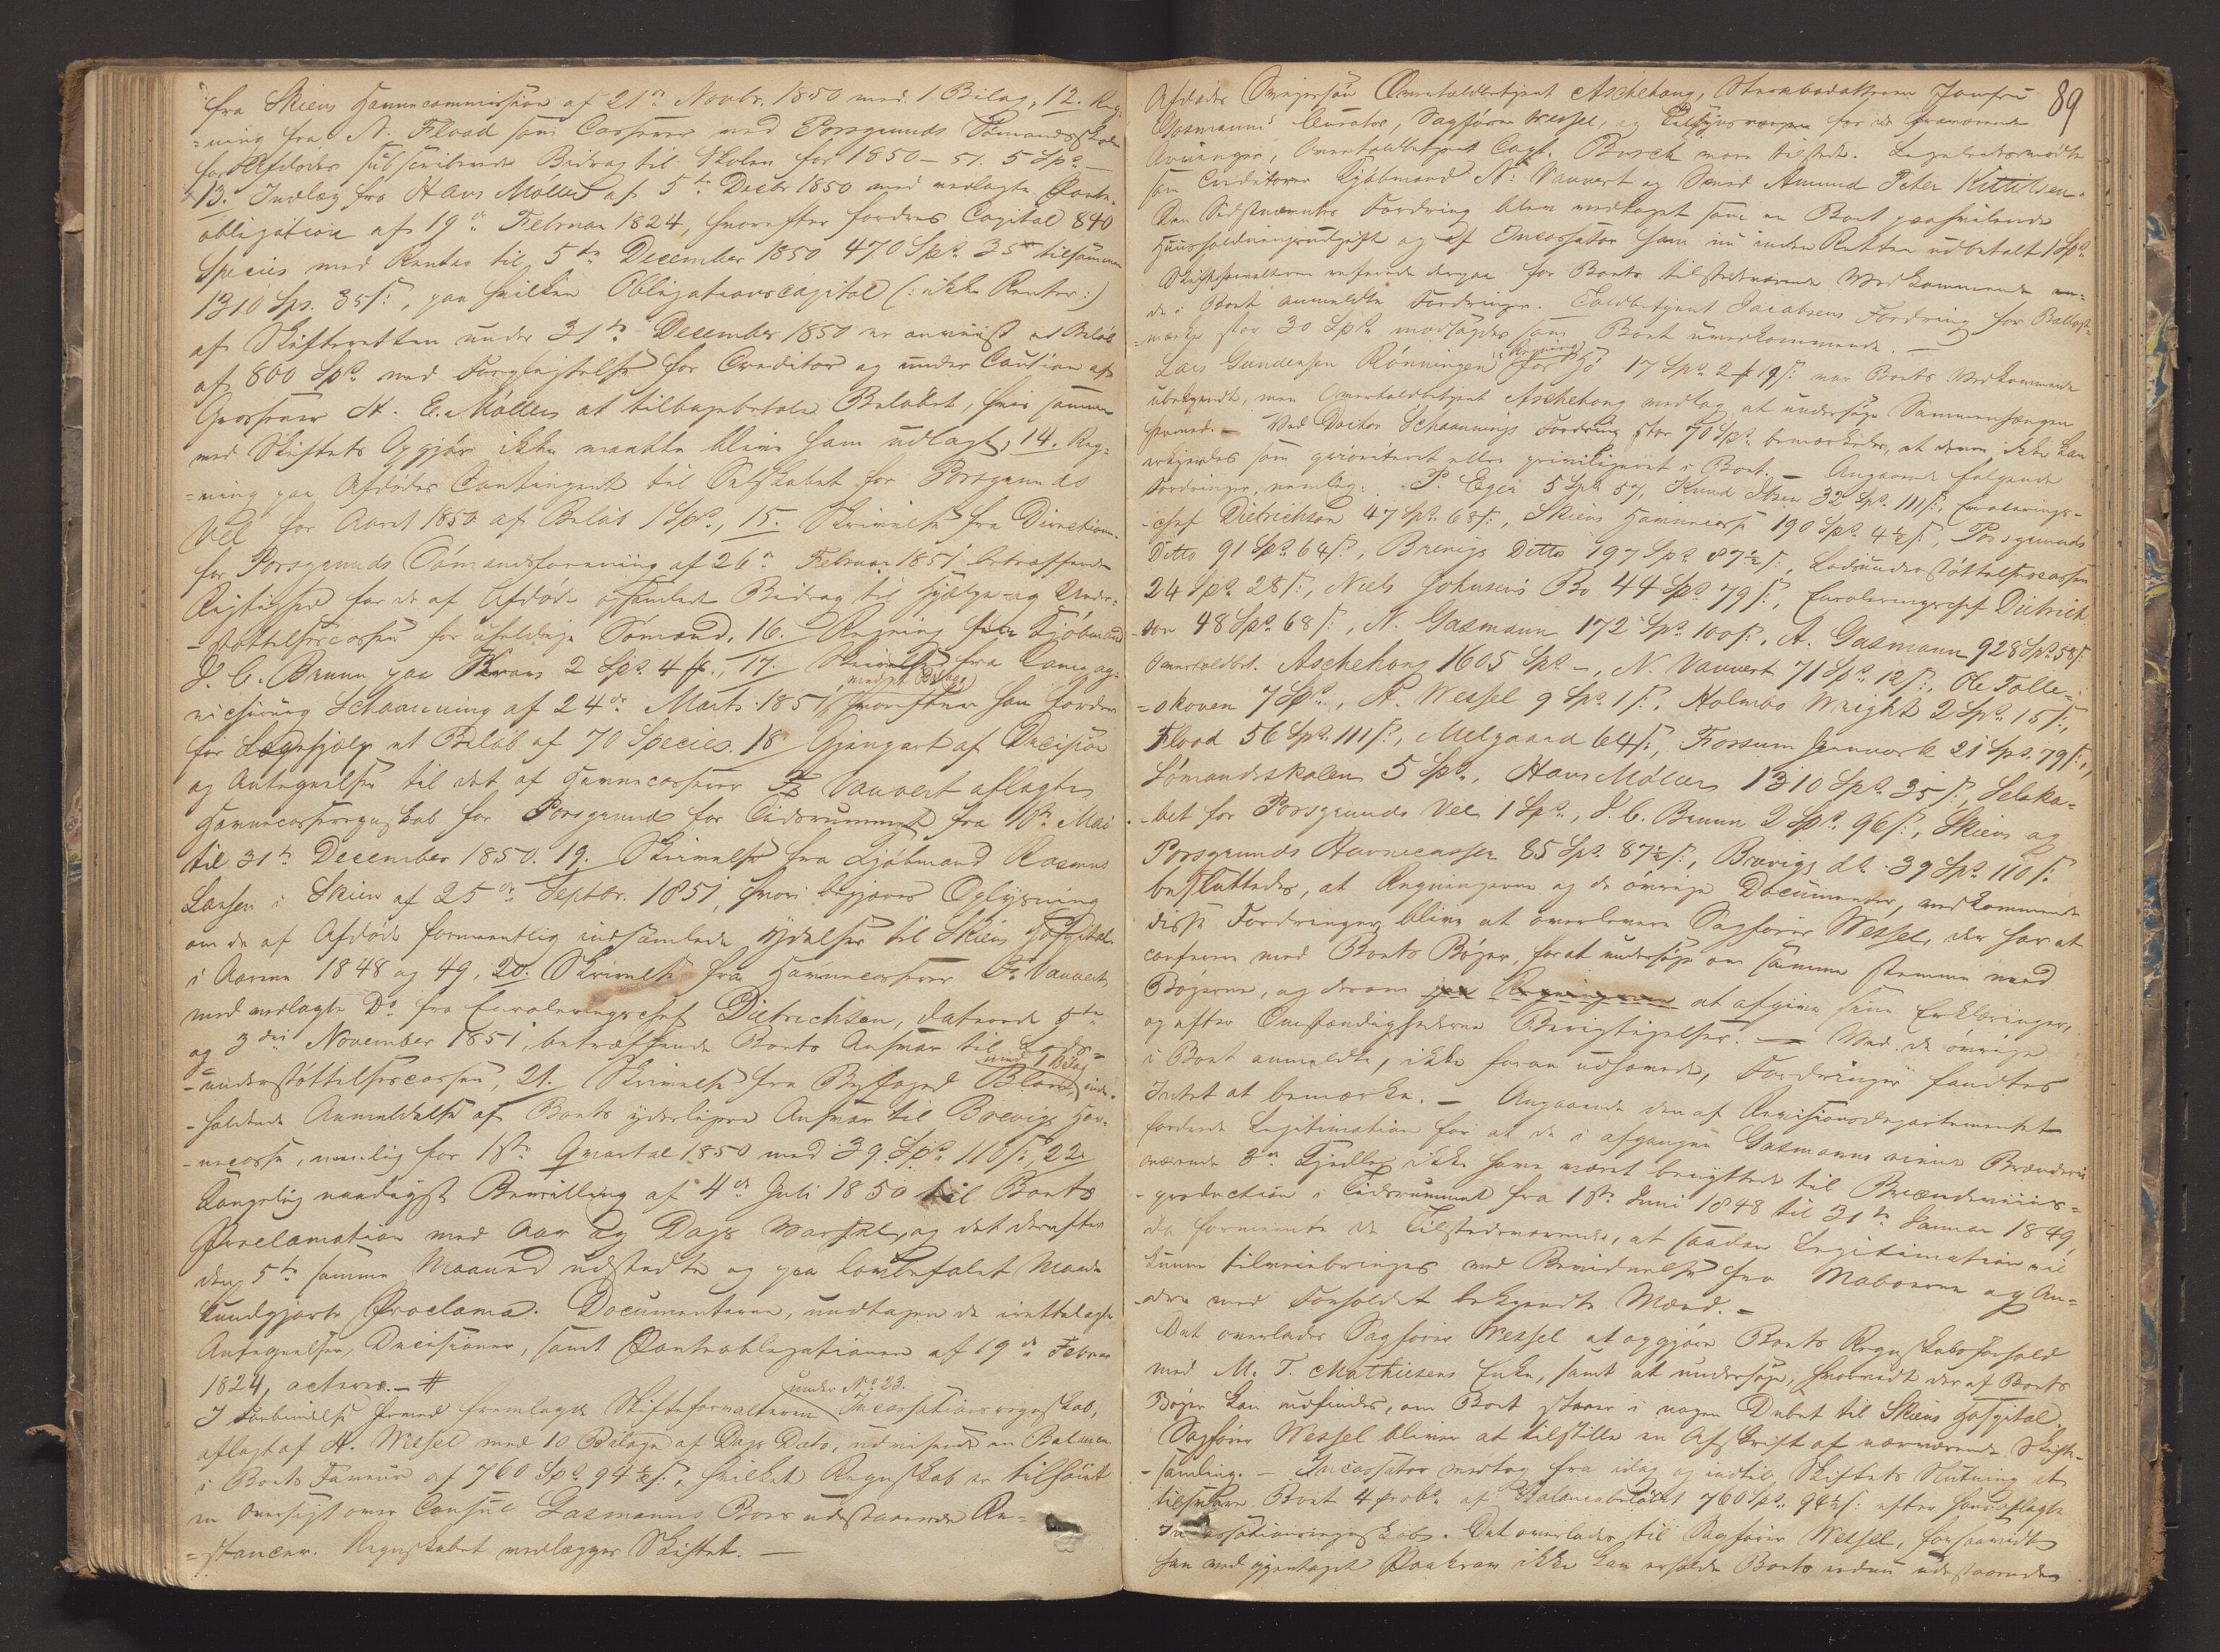 fra Skiens Havnecommission af 21de Novbr. 1850 med 1 Bilag, 12. Reg-
=ning fra N. Flood som Casserer ved Porsgrunds Sømandsskole
for Afdødes subscriberede Bidrag til Skolen for 1850-51. 5 Spd.
13. Indlæg fra Hans Møller af 5te Decbr 1850 med vedlagte Pante-
obligation af 19de Februar 1824, hvorefter fordres Capital 840
Species med Renter til 5te December 1850 470 Spd. 35 s. tilsammen
1310 Sps. 35 s:, paa hvilken Obligationscapital (: ikke Renter :)
af Skifteretten under 31te December 1850 er anviist et Beløb
af 800 Spd. med Forpligtelse for Creditor og under Caution af
Grosserer H. E. Møller at tilbagebetale Beløbet, hvis samme
med Skiftets Opgjør ikke maatte blive ham udlagt, 14. Reg-
=ning paa Afdødes Contingent til Selskabet for Porsgrunds
Vel for Aaret 1850 af Beløb 1 Spd., 15. Skrivelse fra Directionen
for Porsgrunds Sømandsforening af 26de Februar 1851 betræffende
Rigtighed for de af Afdøde opsamlede Bidrag til Hjælpe- og Under-
-støttelsescassen for uheldige Sømænd, 16. Regning fra Kjøbmand
J. C. Bruun paa Varer 2 Spd. 4 ort, 17. Skrivelse fra Compag-
nichirurg Schaanning af 24de Marts 1851, med et Bilag, hvorefter han fordrer
for Lægehjælp et Beløb af 70 Species. 18 Gjenpart af Decision
og Antegnelser til det af Havnecasserer Fr Vauvert aflagte
Havnecasseregnskab for Porsgrund for Tidsrummet fra 18de Mai
til 31te December 1850. 19. Skrivelse fra Kjøbmand Rasmus
Larsen i Skien af 25de Septbr. 1851, hvori begjæres Oplysning
om de af Afdøde formeentlig indsamlede Ydelser til Skiens Hospital
i Aarene 1848 og 49, 20. Skrivelse fra Havnecasserer Fr. Vauvert
med vedlagte Do fra Enrolleringschef Dietrichson, daterede 5te
og 3die November 1851, betræffende Boets Ansvar til Lods-
-understøttelsescassen, 21. Skrivelse fra Byfoged Blom med 1 Bilag inde-
-holdende Anmeldelse af Boets yderligere Ansvar til Brevigs Hav-
-necasse, nemlig for 1ste Qvartal 1850 med 39 Spd. 110 s:, 22
Kongelig naadigst Bevilling af 4de Juli 1850 til Boets
Proclamation med Aar og Dags Varsel, og det derefter
den 5te samme Maaned udstedte og paa lovbefalet Maade
kundgjorte Proclama. Documenterne, undtagen de irettelagte
Antegnelser, Decisioner, samt Panteobligationen af 19de Februar
1824, acteres. - #
I Forbindelse hermed fremlagde Skifteforvalteren under No 23. Incassationsregnskab,
aflagt af H. Wessel med 10 Bilage af Dags Dato, udvisende en Balance
i Boets Faveur af 760 Spd. 94½ s:, hvilket Regnskab er tilføiet
en Oversigt over Consul Gasmanns Boes udestaaende Re-
=stancer. Regnskabet vedlægges Skiftet. —
89
Afdødes Svigersøn Overtoldbetjent Aschehoug, Jomfru
Gasmanns Curator, Sagfører Wessel, og Tilsynsværgen for de fraværende
Arvinger, Overtoldbetjent Capt. Busch vare tilstede. Ligeledes mødte
som Creditorer Kjøbmand N. Vauvert og Smed Amund Peter Kittilsen.
Den Sidstnævntes Fordring blev vedtaget som en Boet paahvilende
Huusholdningsudgift og af Incassator ham nu inden Retten udbetalt 1 Spd.
Skifteforvalteren refererede derpaa for Boets tilstedeværende Vedkommende an-
de i Boet anmeldte Fordringer. Toldbetjent Jacobsens Fordring for Ballast-
-mærke stor 30 Spd. modsagdes som Boet uvedkommende. —
Lars Gundersen Rønningens Regning for Hø 17 Spd. 2 ort 19 s: var Boets Vedkommende
ubekjendt, men Overtoldbetjent Aschehoug vedtog at undersøge Sammenhængen
hermed. — Ved Doctor Schaannings Fordring stor 70 Spd. bemærkedes, at denne ikke kan
erkjendes som prioriteret eller privilegeret i Boet. — Angaaende følgende
Fordringer, nemlig: P. Eger 5 Spd 57, Knud Ibsen 32 Spd. 111 s:, Enrollerings-
-chef Dietrichson 47 Spd. 68 s:, Skiens Havnecasse 190 Spd. 4½ s:, Porsgrunds
Ditto 91 Spd. 64 s:, Brevigs Ditto 197 Spd. 87½ s:, Lodsunderstøttelsescassen
24 Spd. 28 s:, Niels Johnsens Bo 44 Spd. 79 s:, Enrolleringschef Dietrich-
-son 48 Spd. 68 s:, N. Gasmann 172 Spd. 100 s:, A. Gasmann 928 Spd. 58 s:
Overtoldbt. Aschehoug 1605 Spd. -, N. Vauvert 71 Spd. 12 s:, Ole Tolle-
=skoven 7 Spd., H. Wessel 9 Spd. 1 s:, Holmboe Wright 2 Spd. 15 s:,
Flood 56 Spd. 111 s:, Melgaard 64 s:, Fossum Jernværk 21 Spd. 79 s:,
Sømandsskolen 5 Spd., Hans Møller 1310 Spd. 35 s:, Selska-
-bet for Porsgrunds Vel 1 Spd., J. C. Bruun 2 Spd. 96 s:, Skiens og
Porsgrunds Havnecasser 85 Spd. 87½ s:, Brevigs dt. 39 Spd. 110 s:
besluttedes, at Regningerne og de øvrige Documenter, vedkommende
disse Fordringer, bliver at overlevere Sagfører Wessel, der har at
conferere med Boets Bøger, for at undersøge om samme stemme med
Bøgerne, og derom at afgive sine Erklæringer,
og efter Omstændighederne Berigtigelser. — Ved de øvrige
i Boet anmeldte, ikke foran udhævede, Fordringer fandtes
Intet at bemærke. — Angaaende den af Revisionsdepartementet
fordrede Legitimation for at de i afgangne Gasmanns eiende Brænderi
værende 2de Kjedler ikke have været benyttede til Brændeviins-
-production i Tidsrummet fra 1ste Juni 1848 til 31te Januar 1849,
da formeente de Tilstedeværende, at saadan Legitimation vil
kunne tilveiebringes ved Bevidnelse fra Naboerne og An-
-dre med Forholdet bekjendte Mænd. —
Det overlades Sagfører Wessel at opgjøre Boets Regnskabsforhold
med M. T. Mathiesens Enke, samt at undersøge, hvorvidt der af Boets
Bøger kan udfindes, om Boet staaer i nogen Debet til Skiens Hospital.
Sagfører Wessel bliver at tilstille en Afskrift af nærværende Skifte-
-samling. — Incassator vedtog fra idag og indtil Skiftets Slutning at
tilsvare Boet 4 proCt. af Balancebeløbet 760 Spd. 94½ s: efter hans aflagte
Incassationsregnskab. Det overlades til Sagfører Wessel, forsaavidt
han ved gjentaget Paakrav ikke kan erholde Boets endnu udestaaende